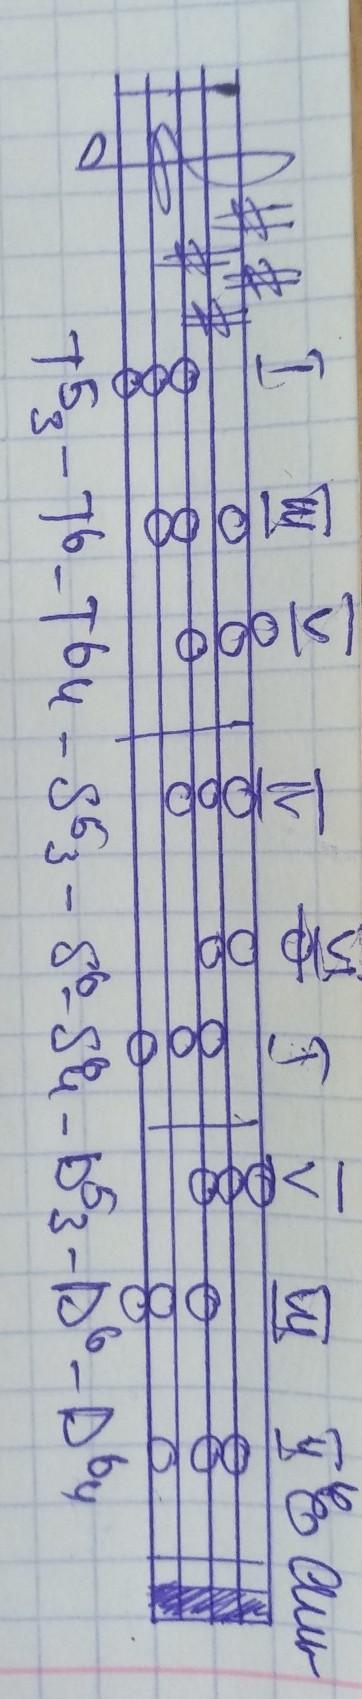 I III V IV VI I V VII II
T53 – T6 – T64 – S53 – S6 – S64 – D53 – D6 – D64